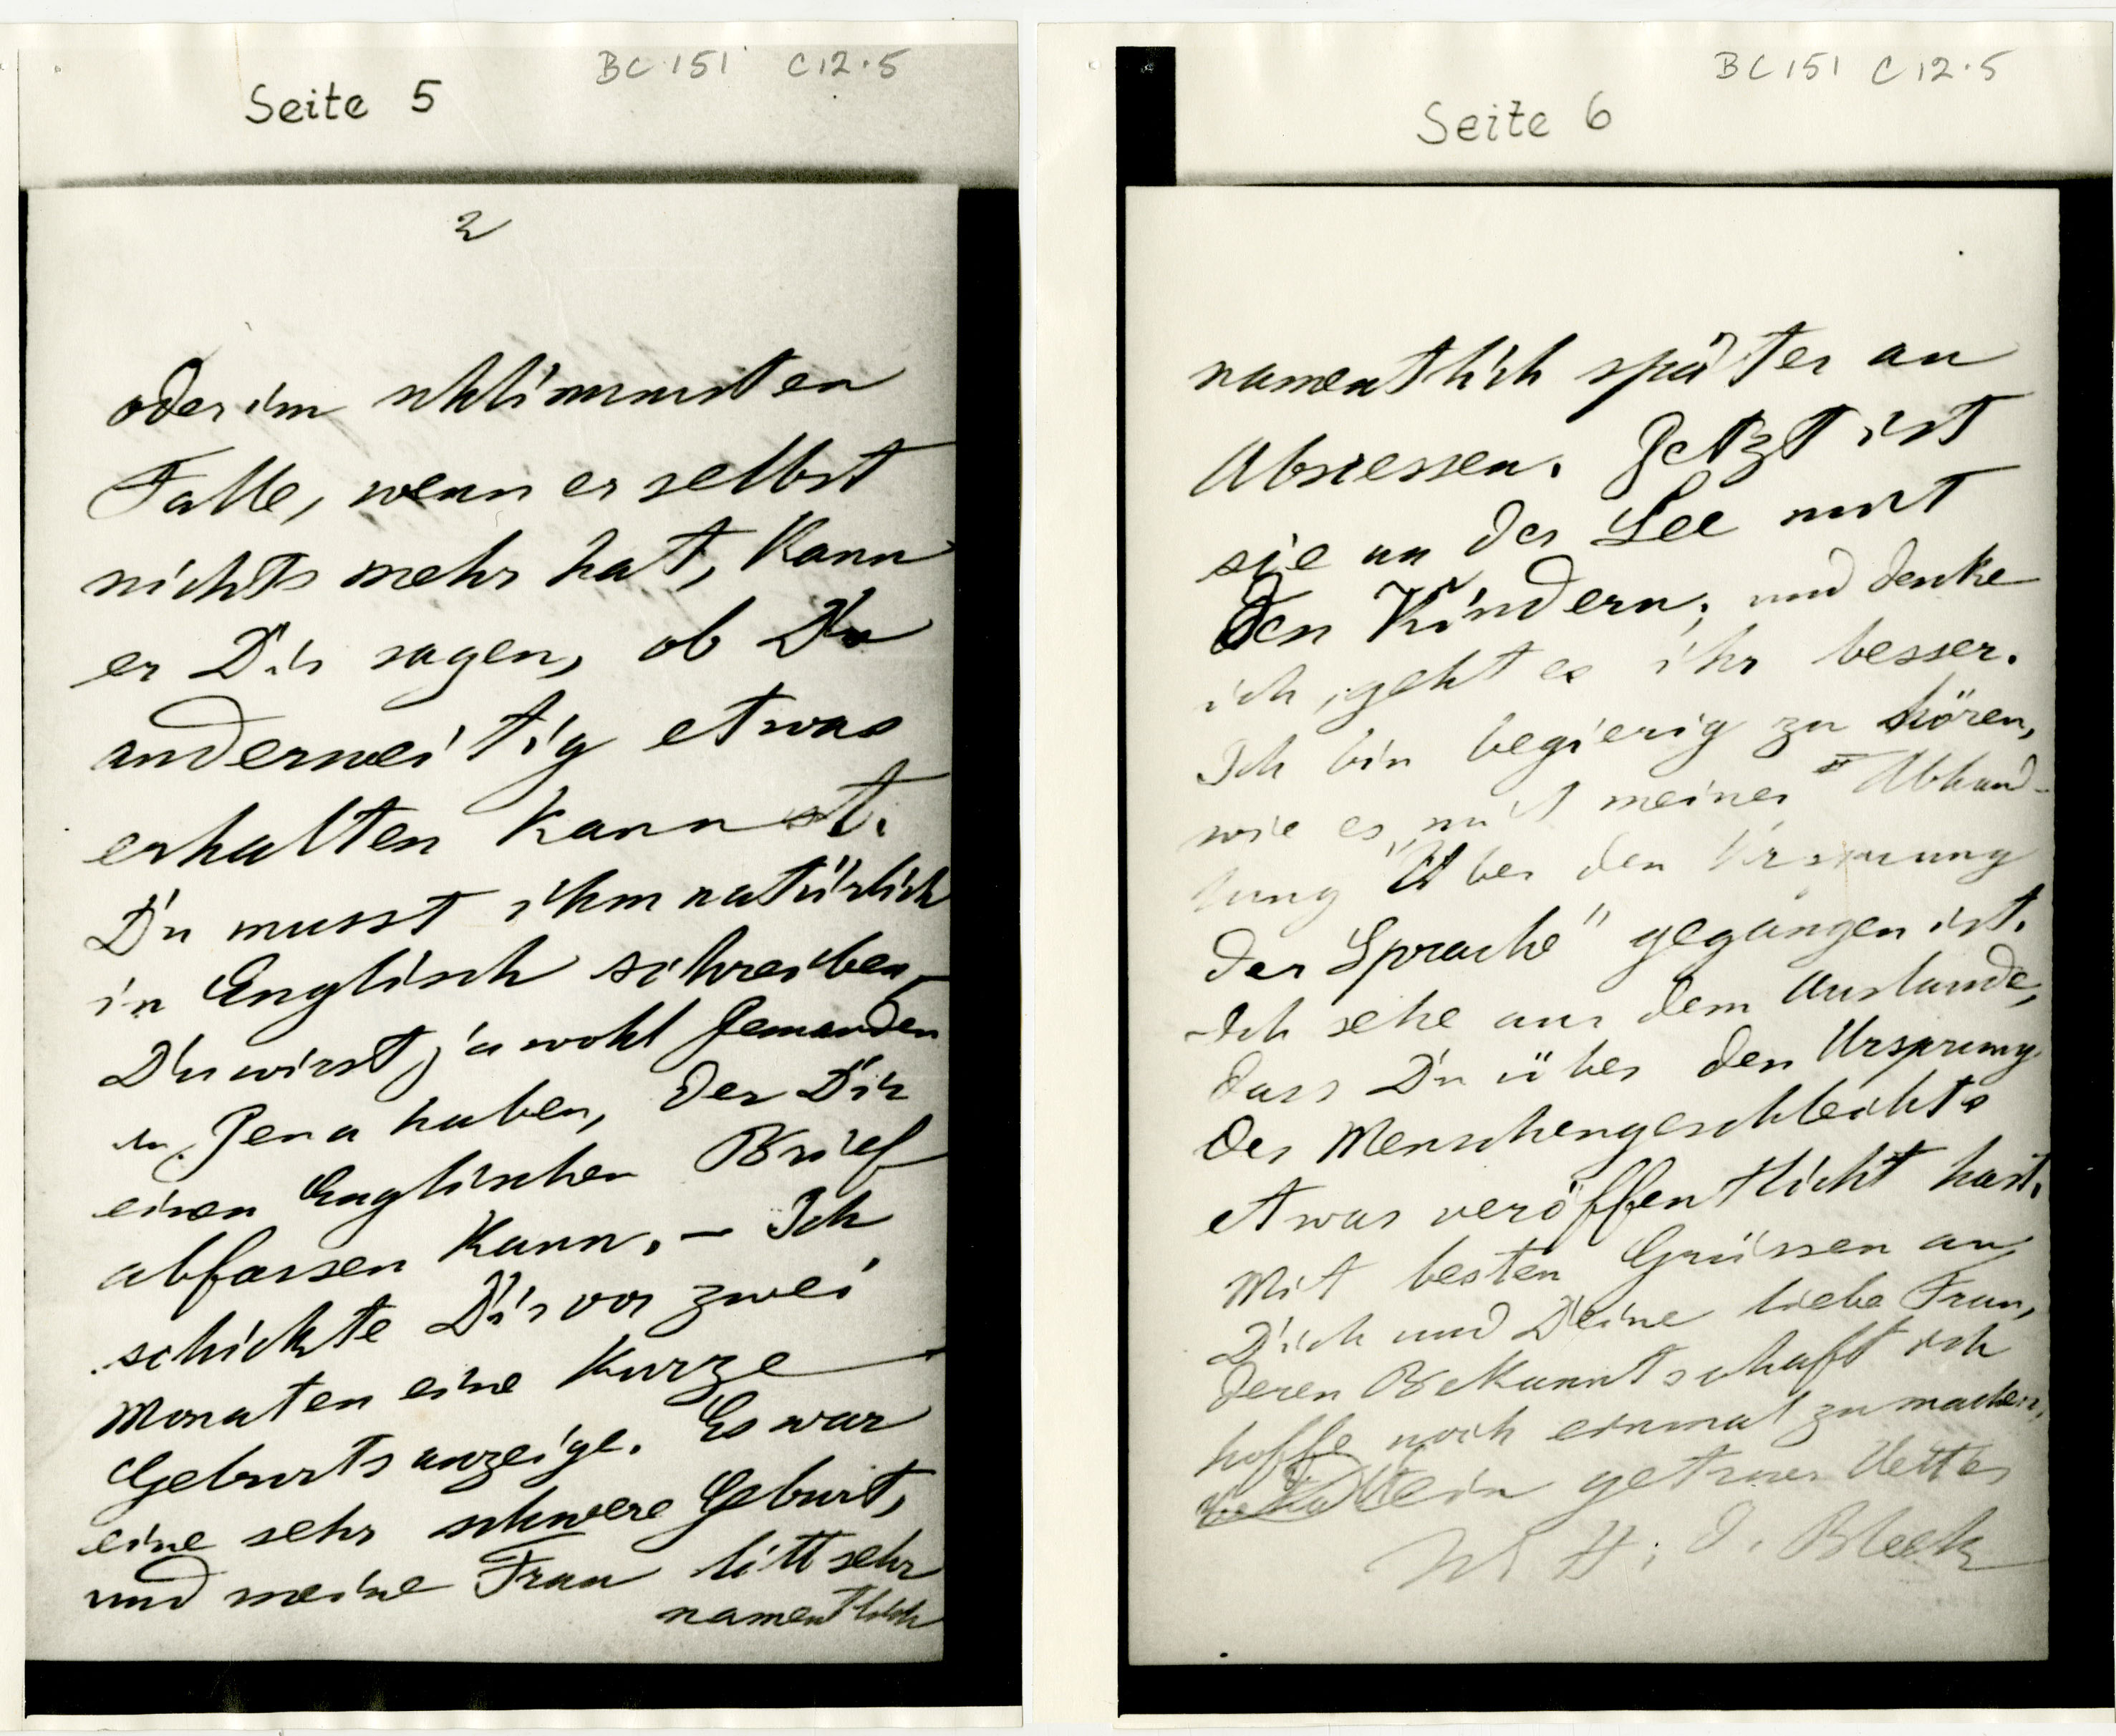 BC 151 C12.5
Seite 5
2
oder im schlimmsten
Falle, wenn er selbst
nichts mehr hat, kann
er Dir sagen, ob Du
anderweitig etwas
erhalten kannst.
Du musst ihm natürlich
in Englisch schreiben,
Du wirst ja wohl Jemanden
in Jena haben, der Dir
einen Englischen Brief
abfassen kann. – Ich
schickte Dir vor zwei
Monaten eine kurze
Geburtsanzeige. Es war
eine sehr schwere Geburt,
und meine Frau litt sehr
namentlich
BC 151 C12.5
Seite 6
namentlich später an
Abscessen. Jetzt ist
sie an der See mit
den Kindern, und denke
ich, geht es ihr besser.
Ich bin begierig zu hören,
wie es mit meiner Abhand-
lung "Über den Ursprung
der Sprache" gegangen ist.
Ich sehe aus dem Auslande,
dass Du über den Ursprung
des Menschengeschlechts
etwas veröffentlicht hast.
Mit besten Grüssen an
Dich und Deine liebe Frau,
deren Bekanntschaft ich
hoffe noch einmal zu machen,
Dein getreuer Vetter
W. H. I. Bleek